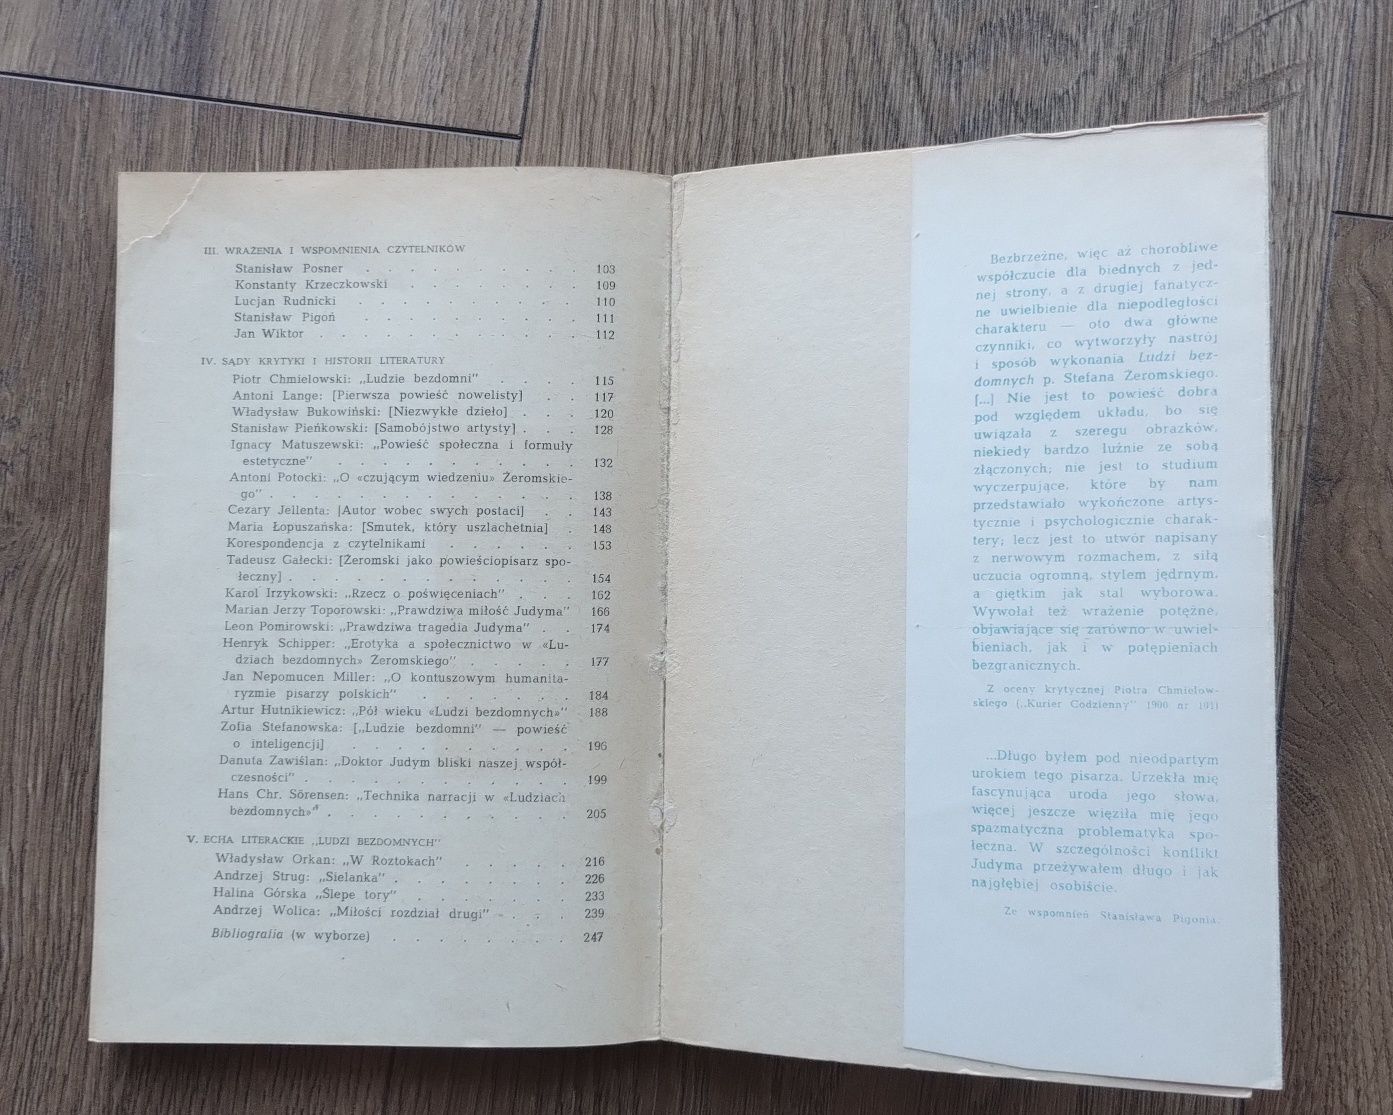 III. WRAŻENIA I WSPOMNIENIA CZYTELNIKÓW
Stanisław Posner . . . . . . . . 103
Konstanty Krzeczkowski . . . . . . . 109
Lucjan Rudnicki . . . . . . . . 110
Stanisław Pigoń . . . . . . . . 111
Jan Wiktor . . . . . . . . . 112
IV. SĄDY KRYTYKI I HISTORII LITERATURY
Piotr Chmielowski: „Ludzie bezdomni” . . . . 115
Antoni Lange: [Pierwsza powieść nowelisty] . . 117
Władysław Bukowiński: [Niezwykłe dzieło] . . . 120
Stanisław Pieńkowski: [Samobójstwo artysty] . . . 128
Ignacy Matuszewski: „Powieść społeczna i formuły
estetyczne” . . . . . . . . . 132
Antoni Potocki: „O «czującym wiedzeniu» Żeromskie-
go” . . . . . . . . . . . . 138
Cezary Jellenta: [Autor wobec swych postaci] . . 143
Maria Łopuszańska: [Smutek, który uszlachetnia] . 148
Korespondencja z czytelnikami . . . . . . 153
Tadeusz Gałecki: [Żeromski jako powieściopisarz spo-
łeczny] . . . . . . . . . . . 154
Karol Irzykowski: „Rzecz o poświęceniach” . . . 162
Marian Jerzy Toporowski: „Prawdziwa miłość Judyma” 166
Leon Pomirowski: „Prawdziwa tragedia Judyma” . . 174
Henryk Schipper: „Erotyka a społecznictwo w «Lu-
dziach bezdomnych» Żeromskiego” . . . . . 177
Jan Nepomucen Miller: „O kontuszowym humanita-
ryzmie pisarzy polskich” . . . . . . . 184
Artur Hutnikiewicz: „Pół wieku «Ludzi bezdomnych»” 188
Zofia Stefanowska: [„Ludzie bezdomni” — powieść
o inteligencji] . . . . . . . . . 196
Danuta Zawiślan: „Doktor Judym bliski naszej współ-
czesności” . . . . . . . . . . . 199
Hans Chr. Sörensen: „Technika narracji w «Ludziach
bezdomnych»” . . . . . . . . . . 205
V. ECHA LITERACKIE „LUDZI BEZDOMNYCH”
Władysław Orkan: „W Roztokach” . . . . . 216
Andrzej Strug: „Sielanka” . . . . . . . 226
Halina Górska „Ślepe tory” . . . . . . . 233
Andrzej Wolica: „Miłości rozdział drugi” . . . 239
Bibliografia (w wyborze) . . . . . . . 247
Bezbrzeżne, więc aż chorobliwe
współczucie dla biednych z jed-
nej strony, a z drugiej fanatycz-
ne uwielbienie dla niepodległości
charakteru — oto dwa główne
czynniki, co wytworzyły nastrój
i sposób wykonania Ludzi bez-
domnych p. Stefana Żeromskiego.
[...] Nie jest to powieść dobra
pod względem układu, bo się
uwiązała z szeregu obrazków,
niekiedy bardzo luźnie ze sobą
złączonych; nie jest to studium
wyczerpujące, które by nam
przedstawiało wykończone artys-
tycznie i psychologicznie charak-
tery; lecz jest to utwór napisany
z nerwowym rozmachem, z siłą
uczucia ogromną, stylem jędrnym,
a giętkim jak stal wyborowa.
Wywołał też wrażenie potężne,
objawiające się zarówno w uwiel-
bieniach, jak i w potępieniach
bezgranicznych.
Z oceny krytycznej Piotra Chmielow-
skiego („Kurier Codzienny” 1900 nr 101)
...Długo byłem pod nieodpartym
urokiem tego pisarza. Urzekła mię
fascynująca uroda jego słowa,
więcej jeszcze więziła mię jego
spazmatyczna problematyka spo-
łeczna. W szczególności konflikt
Judyma przeżywałem długo i jak
najgłębiej osobiście.
Ze wspomnień Stanisława Pigonia.